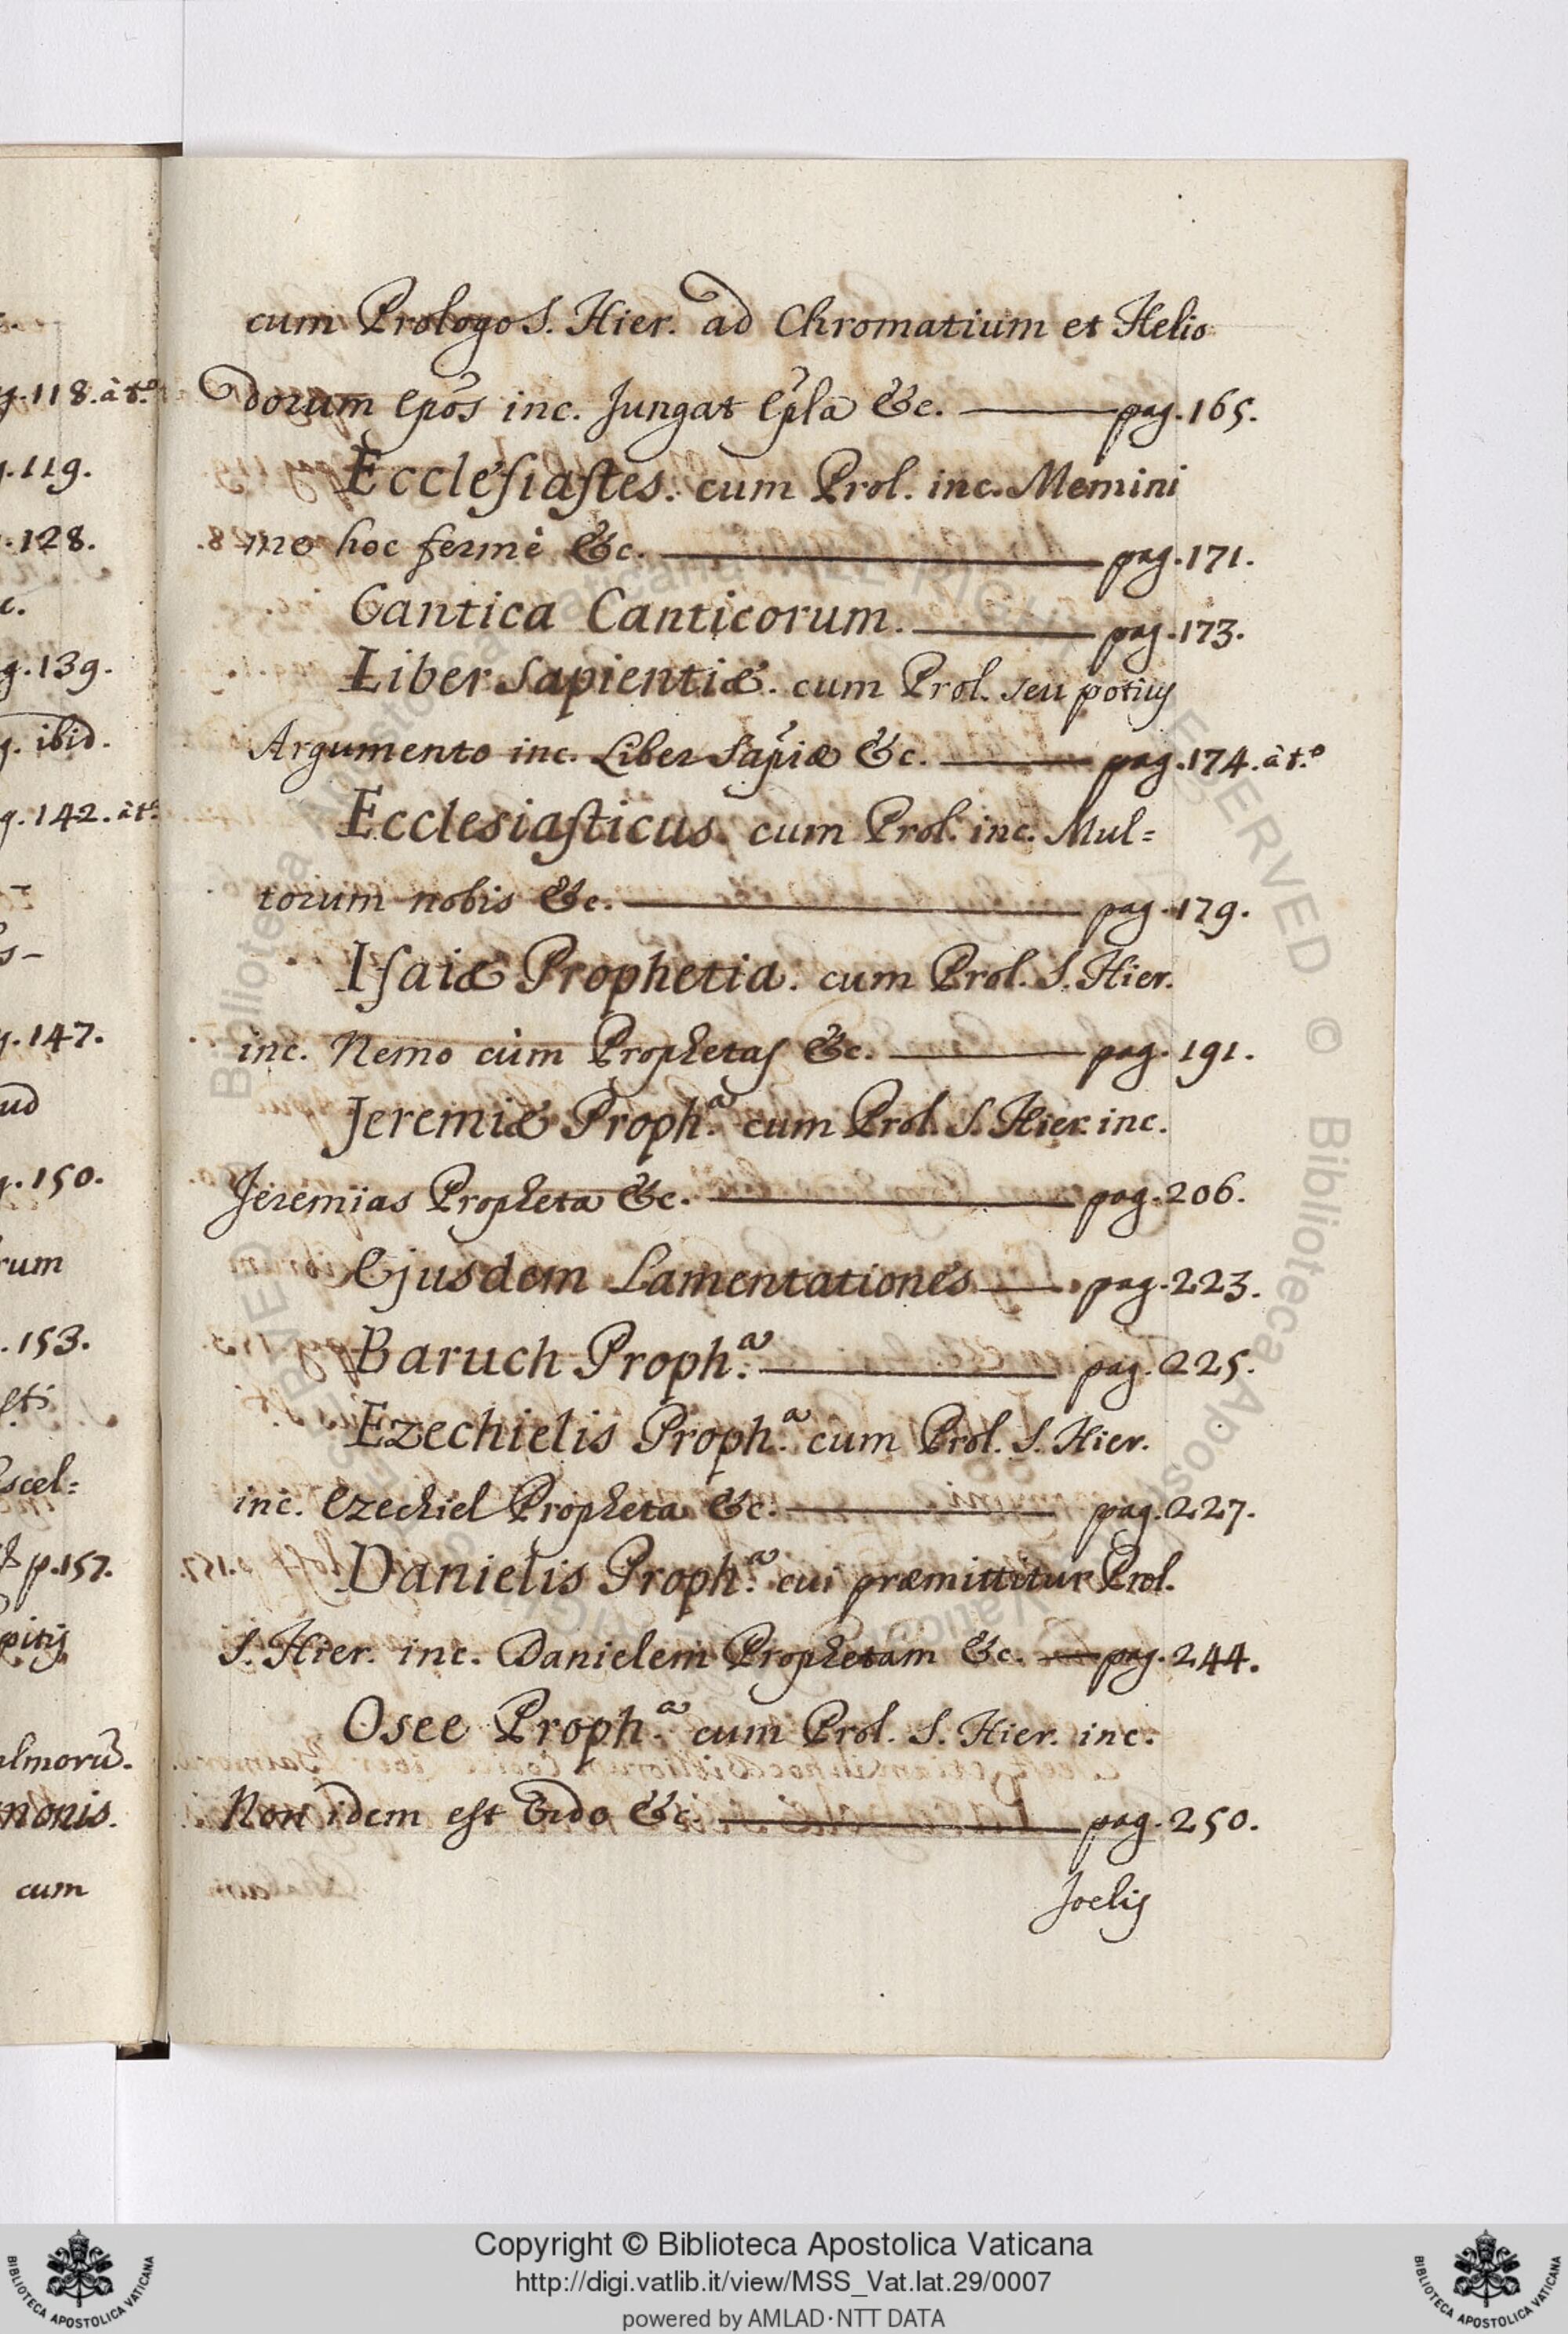 cum Prologo S. Hier. ad Chromatium et Helio
dorum Epõs inc. Jungat Epl̃a &c. pag. 165.
Ecclesiastes. cum Prol. inc. Memini
me hoc fermè &c. pag. 171.
Cantica Canticorum. pag. 173.
Liber Sapientiæ. cum Prol. seu potius
Argumento inc. Liber Sap̃iæ &c. pag. 174. à t.º
Ecclesiasticus. cum Prol. inc. Mul=
torum nobis &c. pag. 179.
Isaiæ Prophetia. cum Prol. S. Hier.
inc. Nemo cùm Prophetas &c. pag. 191.
Jeremiæ Proph.ª cum Prol. S. Hier. inc.
Jeremias Propheta &c. pag. 206.
Ejusdem Lamentationes pag. 223.
Baruch Proph.ª pag. 225.
Ezechielis Proph.ª cum Prol. S. Hier.
inc. Ezechiel Propheta &c. pag. 227.
Danielis Proph.ª cui præmittitur Prol.
S. Hier. inc. Danielem Prophetam &c. pag. 244.
Osee Proph.ª cum Prol. S. Hier. inc.
Non idem est Ordo &c. pag. 250.
Joelis
g. 118. à t.º
g. 119.
. 128.
c.
g. 139.
g. ibid.
g. 142. à t.º
s-
g. 147.
ud
g. 150.
rum
. 153.
sti
scel=
p. 157.
pitis
almorũ.
monis.
cum
Copyright © Biblioteca Apostolica Vaticana
http://digi.vatlib.it/view/MSS_Vat.lat.29/0007
powered by AMLAD·NTT DATA
BIBLIOTECA APOSTOLICA VATICANA
BIBLIOTECA APOSTOLICA VATICANA